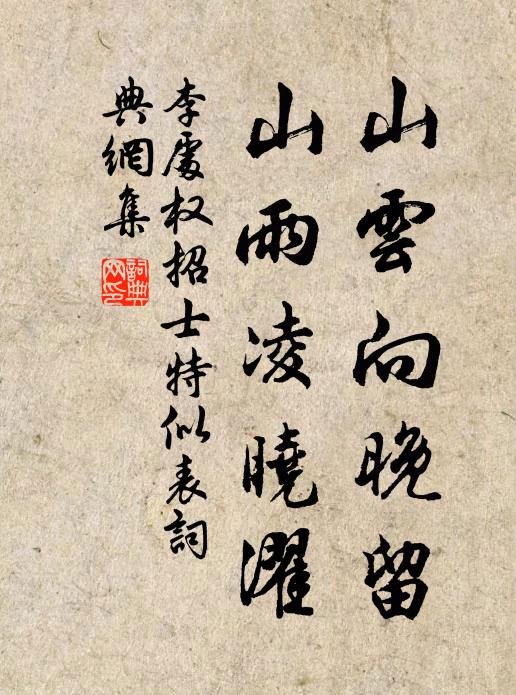 山雲向晚留
山雨凌曉濯
李處权招士特似表詞
典網集
詞典网印